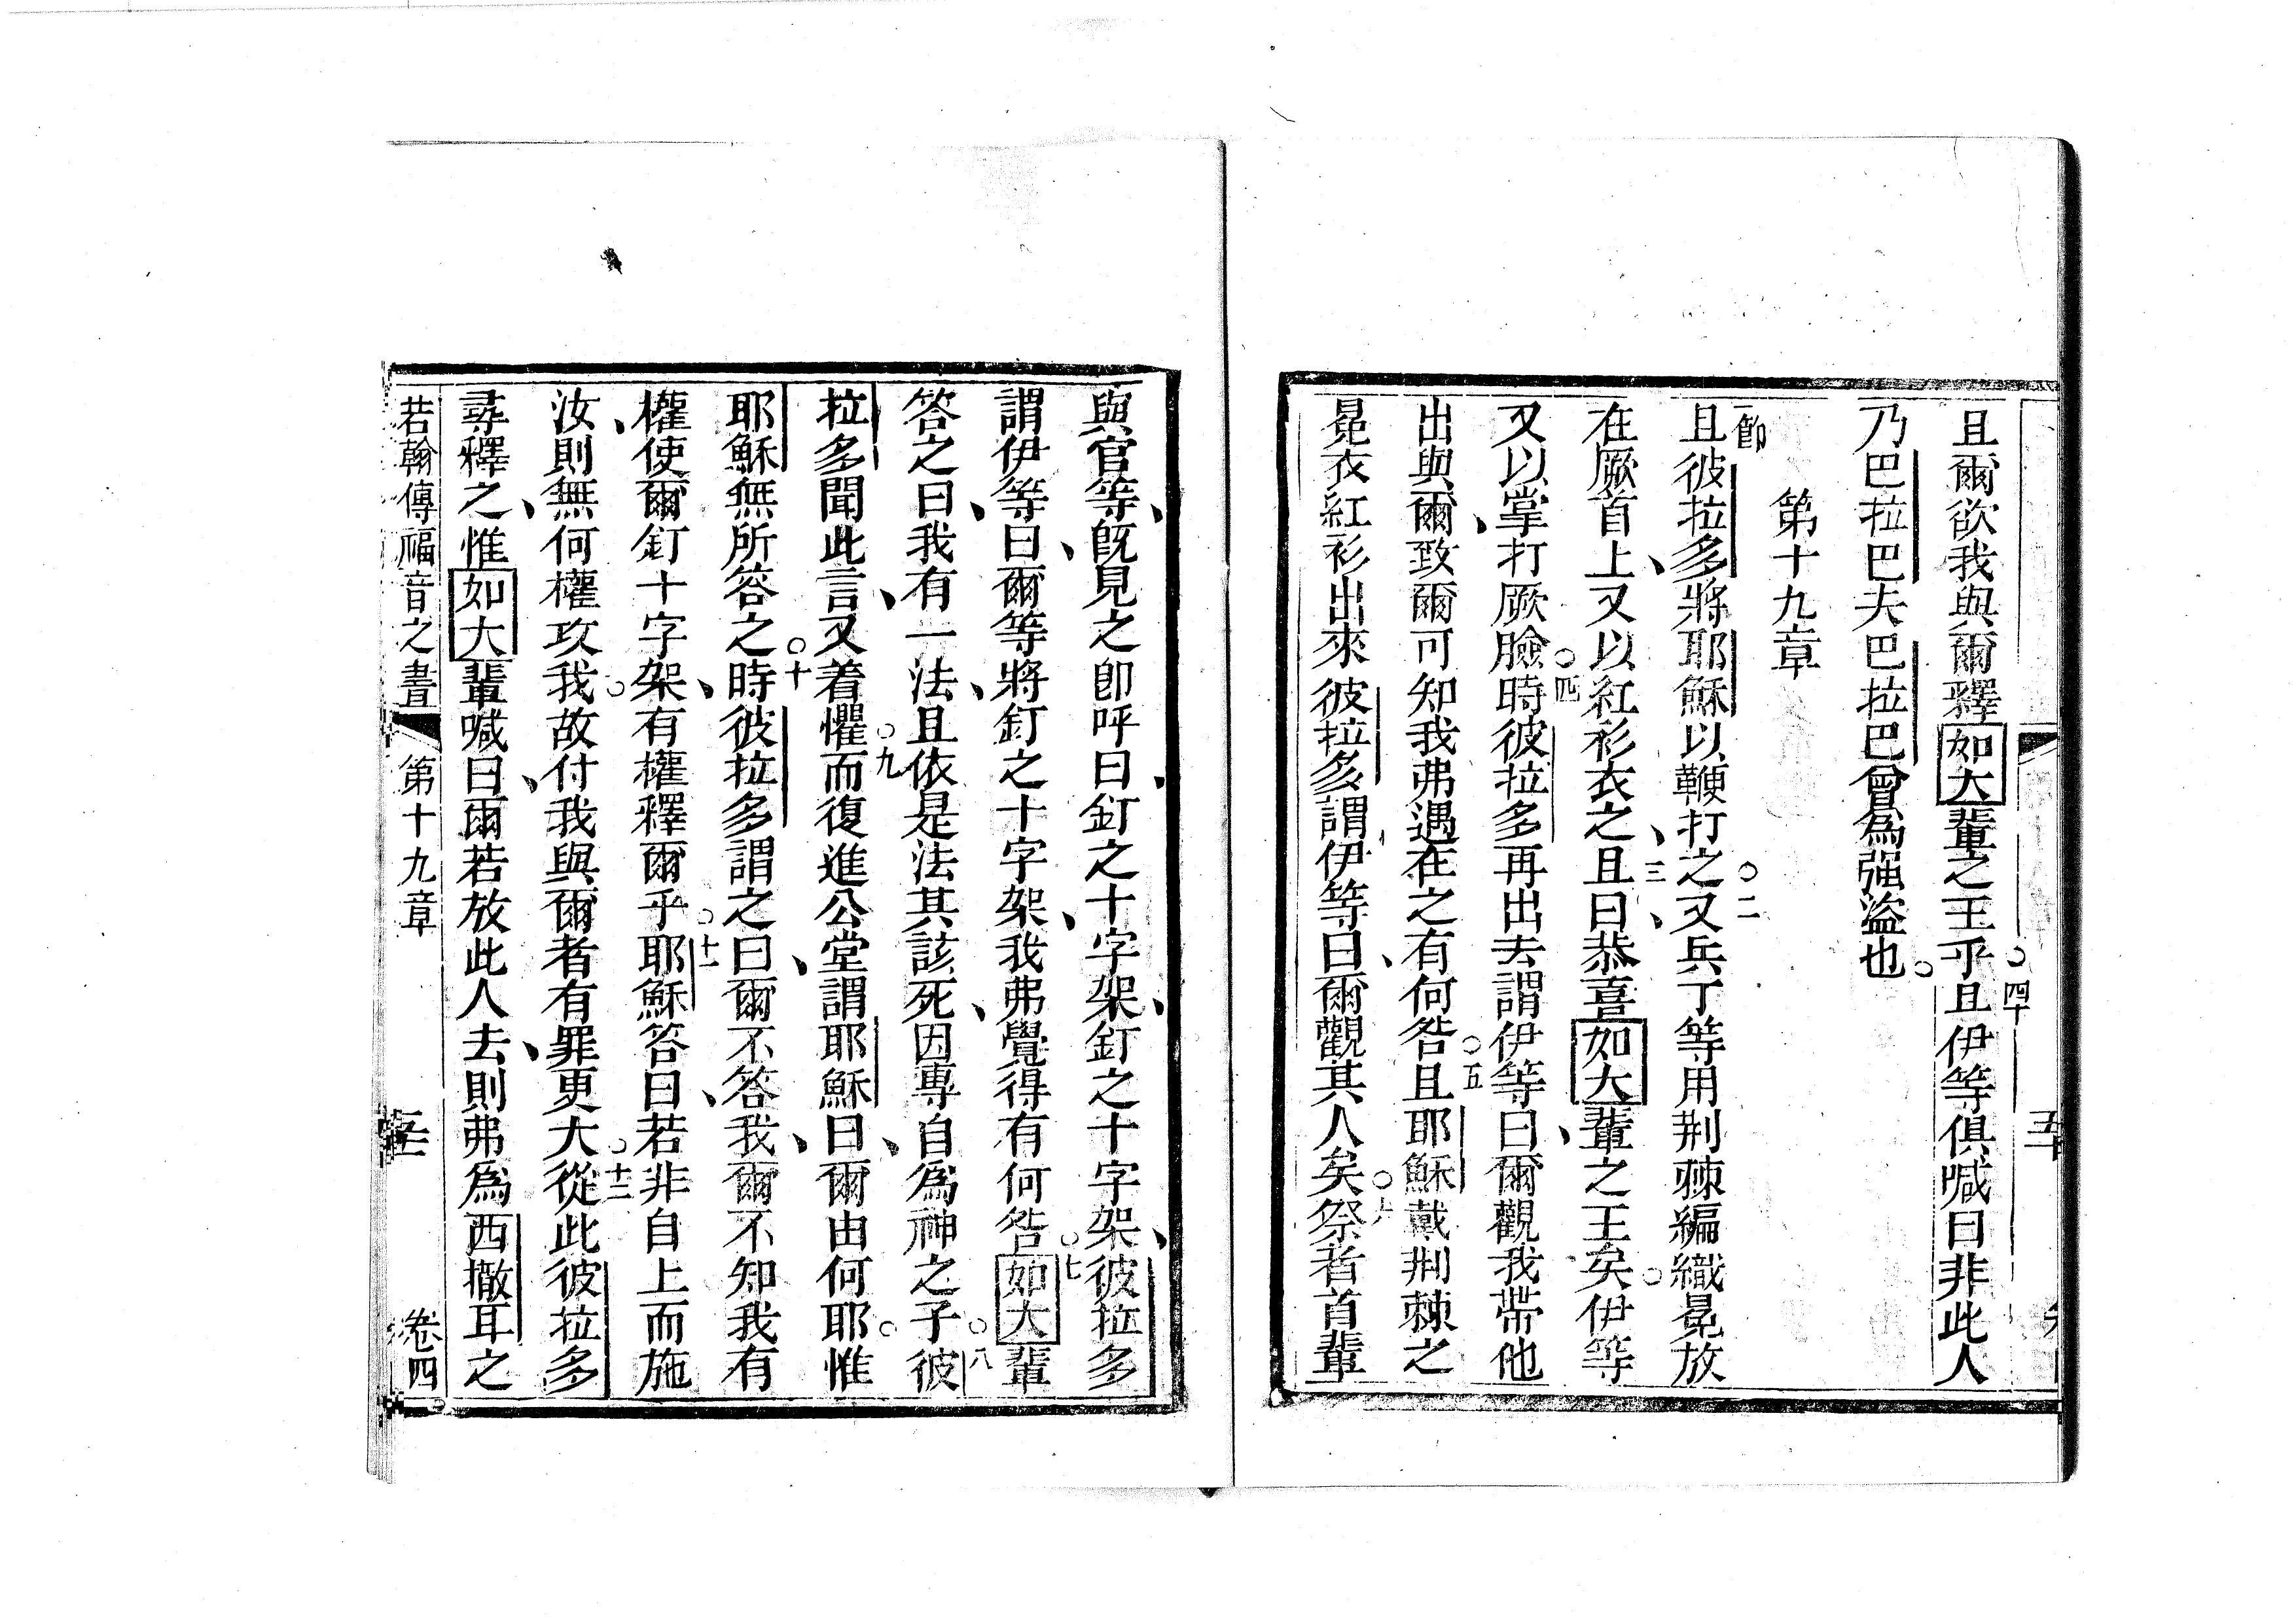 且爾欲我與爾釋如大輩之王乎且伊等俱喊曰非此人
四十
乃巴拉巴夫巴拉巴曾爲强盜也
第十九章
一節
且彼拉多將耶穌以鞭打之又兵丁等用荆棘編織冕放
二
在厥首上又以紅衫衣之且曰恭喜如大輩之王矣伊等
三
又以掌打厥臉時彼拉多再出去謂伊等曰爾觀我帶他
四
出與爾致爾可知我弗遇在之有何咎且耶穌戴荆棘之
五
冕衣紅衫出來彼拉多謂伊等曰爾觀其人矣祭者首輩
六
與官等旣見之卽呼曰釘之十字架釘之十字架彼拉多
謂伊等曰爾等將釘之十字架我弗覺得有何咎如大輩
七
答之曰我有一法且依是法其該死因專自爲神之子彼
八
拉多聞此言又着懼而復進公堂謂耶穌曰爾由何耶惟
九
耶穌無所答之時彼拉多謂之曰爾不答我爾不知我有
十
權使爾釘十字架有權釋爾乎耶穌答曰若非自上而施
十一
汝則無何權攻我故付我與爾者有罪更大從此彼拉多
十二
尋釋之惟如大輩喊曰爾若放此人去則弗爲西撒耳之
若翰傳福音之書 第十九章 卷四